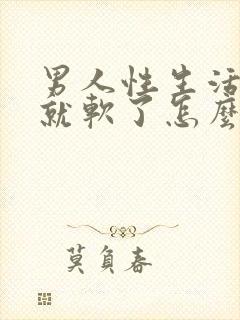 男人性生活
就軟了怎麼
莫負春